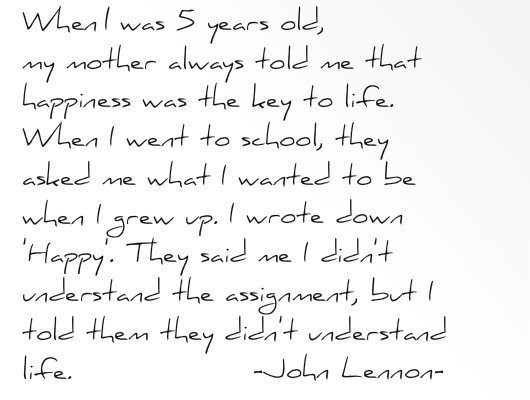 When I was 5 years old,
my mother always told me that
happiness was the key to life.
When I went to school, they
asked me what I wanted to be
when I grew up. I wrote down
'Happy'. They said me I didn't
understand the assignment, but I
told them they didn't understand
life. -John Lennon-